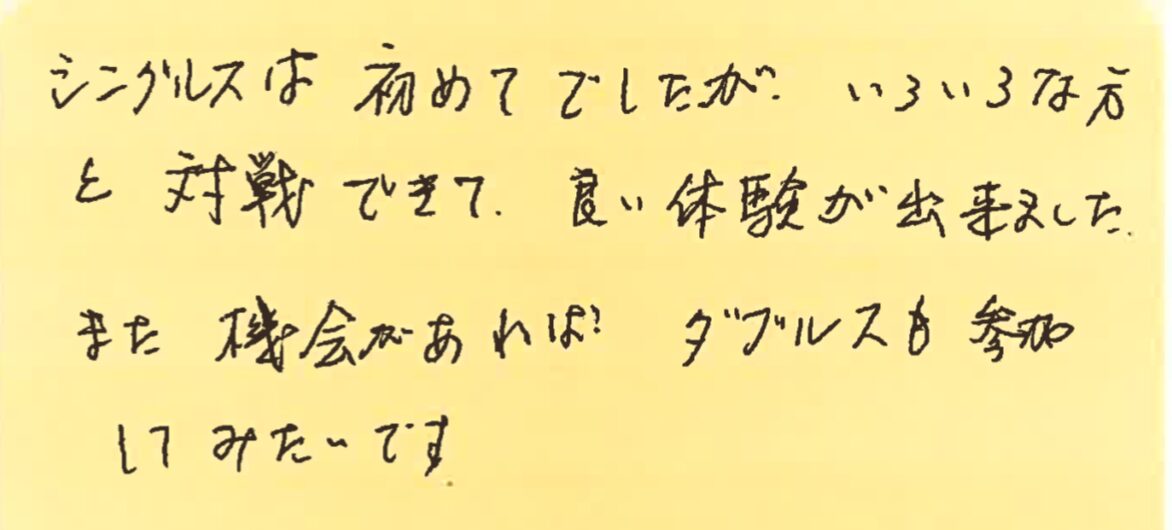 シングルスは 初めてでしたが、いろいろな方
と 対戦できて、良い体験が出来ました。
また 機会があれば、ダブルスも参加
してみたいです。